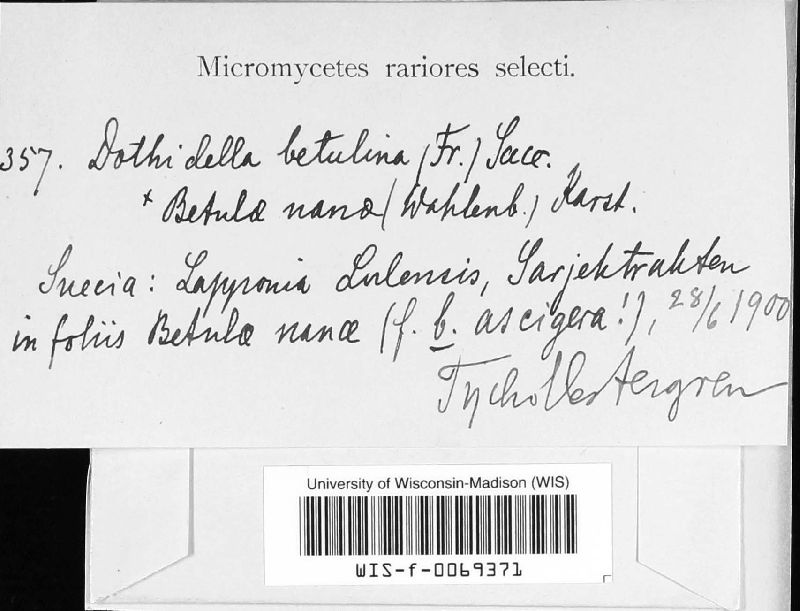 Micromycetes rariores selecti.
357. Dothidella betulina (Fr.) Sacc.
* Betulæ nanæ (Wahlenb.) Karst.
Suecia: Lapponia Lulensis, Sarjektrakten
in foliis Betulæ nanæ (f. b. ascigera!), 28/6 1900
Tycho Vestergren
University of Wisconsin-Madison (WIS)
WIS-f-0069371